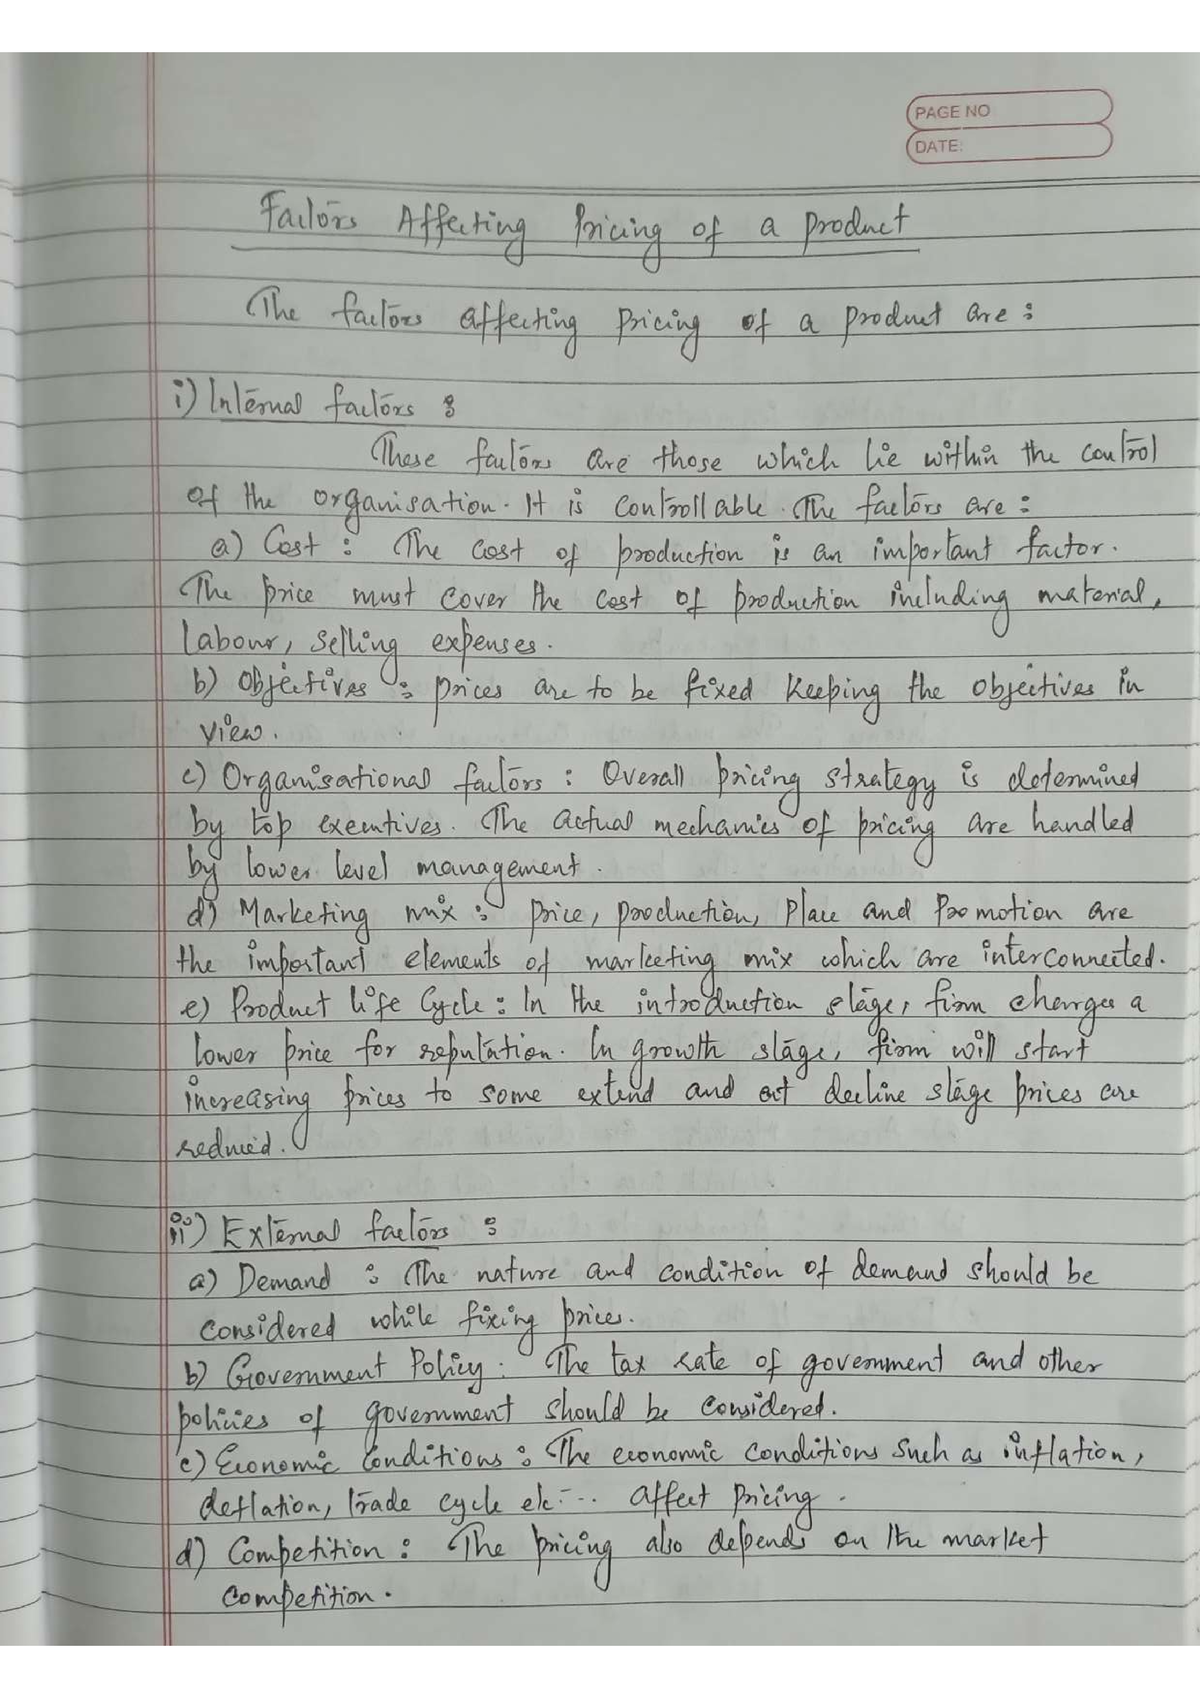 PAGE NO
DATE:
Factors Affecting Pricing of a product
The factors affecting pricing of a product are :
i) Internal factors :
These factors are those which lie within the control
of the organisation. It is controllable. The factors are :
a) Cost : The cost of production is an important factor.
The price must cover the cost of production including material,
labour, selling expenses.
b) Objectives : prices are to be fixed keeping the objectives in
view.
c) Organisational factors : Overall pricing strategy is determined
by top executives. The actual mechanics of pricing are handled
by lower level management.
d) Marketing mix : price, production, Place and Promotion are
the important elements of marketing mix which are interconnected.
e) Product life Cycle : In the introduction stage, firm charges a
lower price for reputation. In growth stage, firm will start
increasing prices to some extend and at decline stage prices are
reduced.
ii) External factors :
a) Demand : The nature and condition of demand should be
considered while fixing prices.
b) Government Policy : The tax rate of government and other
policies of government should be considered.
c) Economic Conditions : The economic conditions such as inflation,
deflation, trade cycle etc... affect pricing.
d) Competition : The pricing also depends on the market
competition.